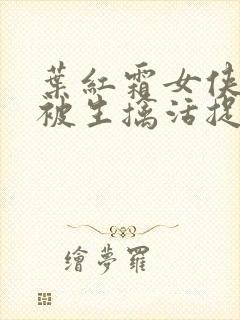 葉紅霜女俠
被生擒活捉
繪夢羅